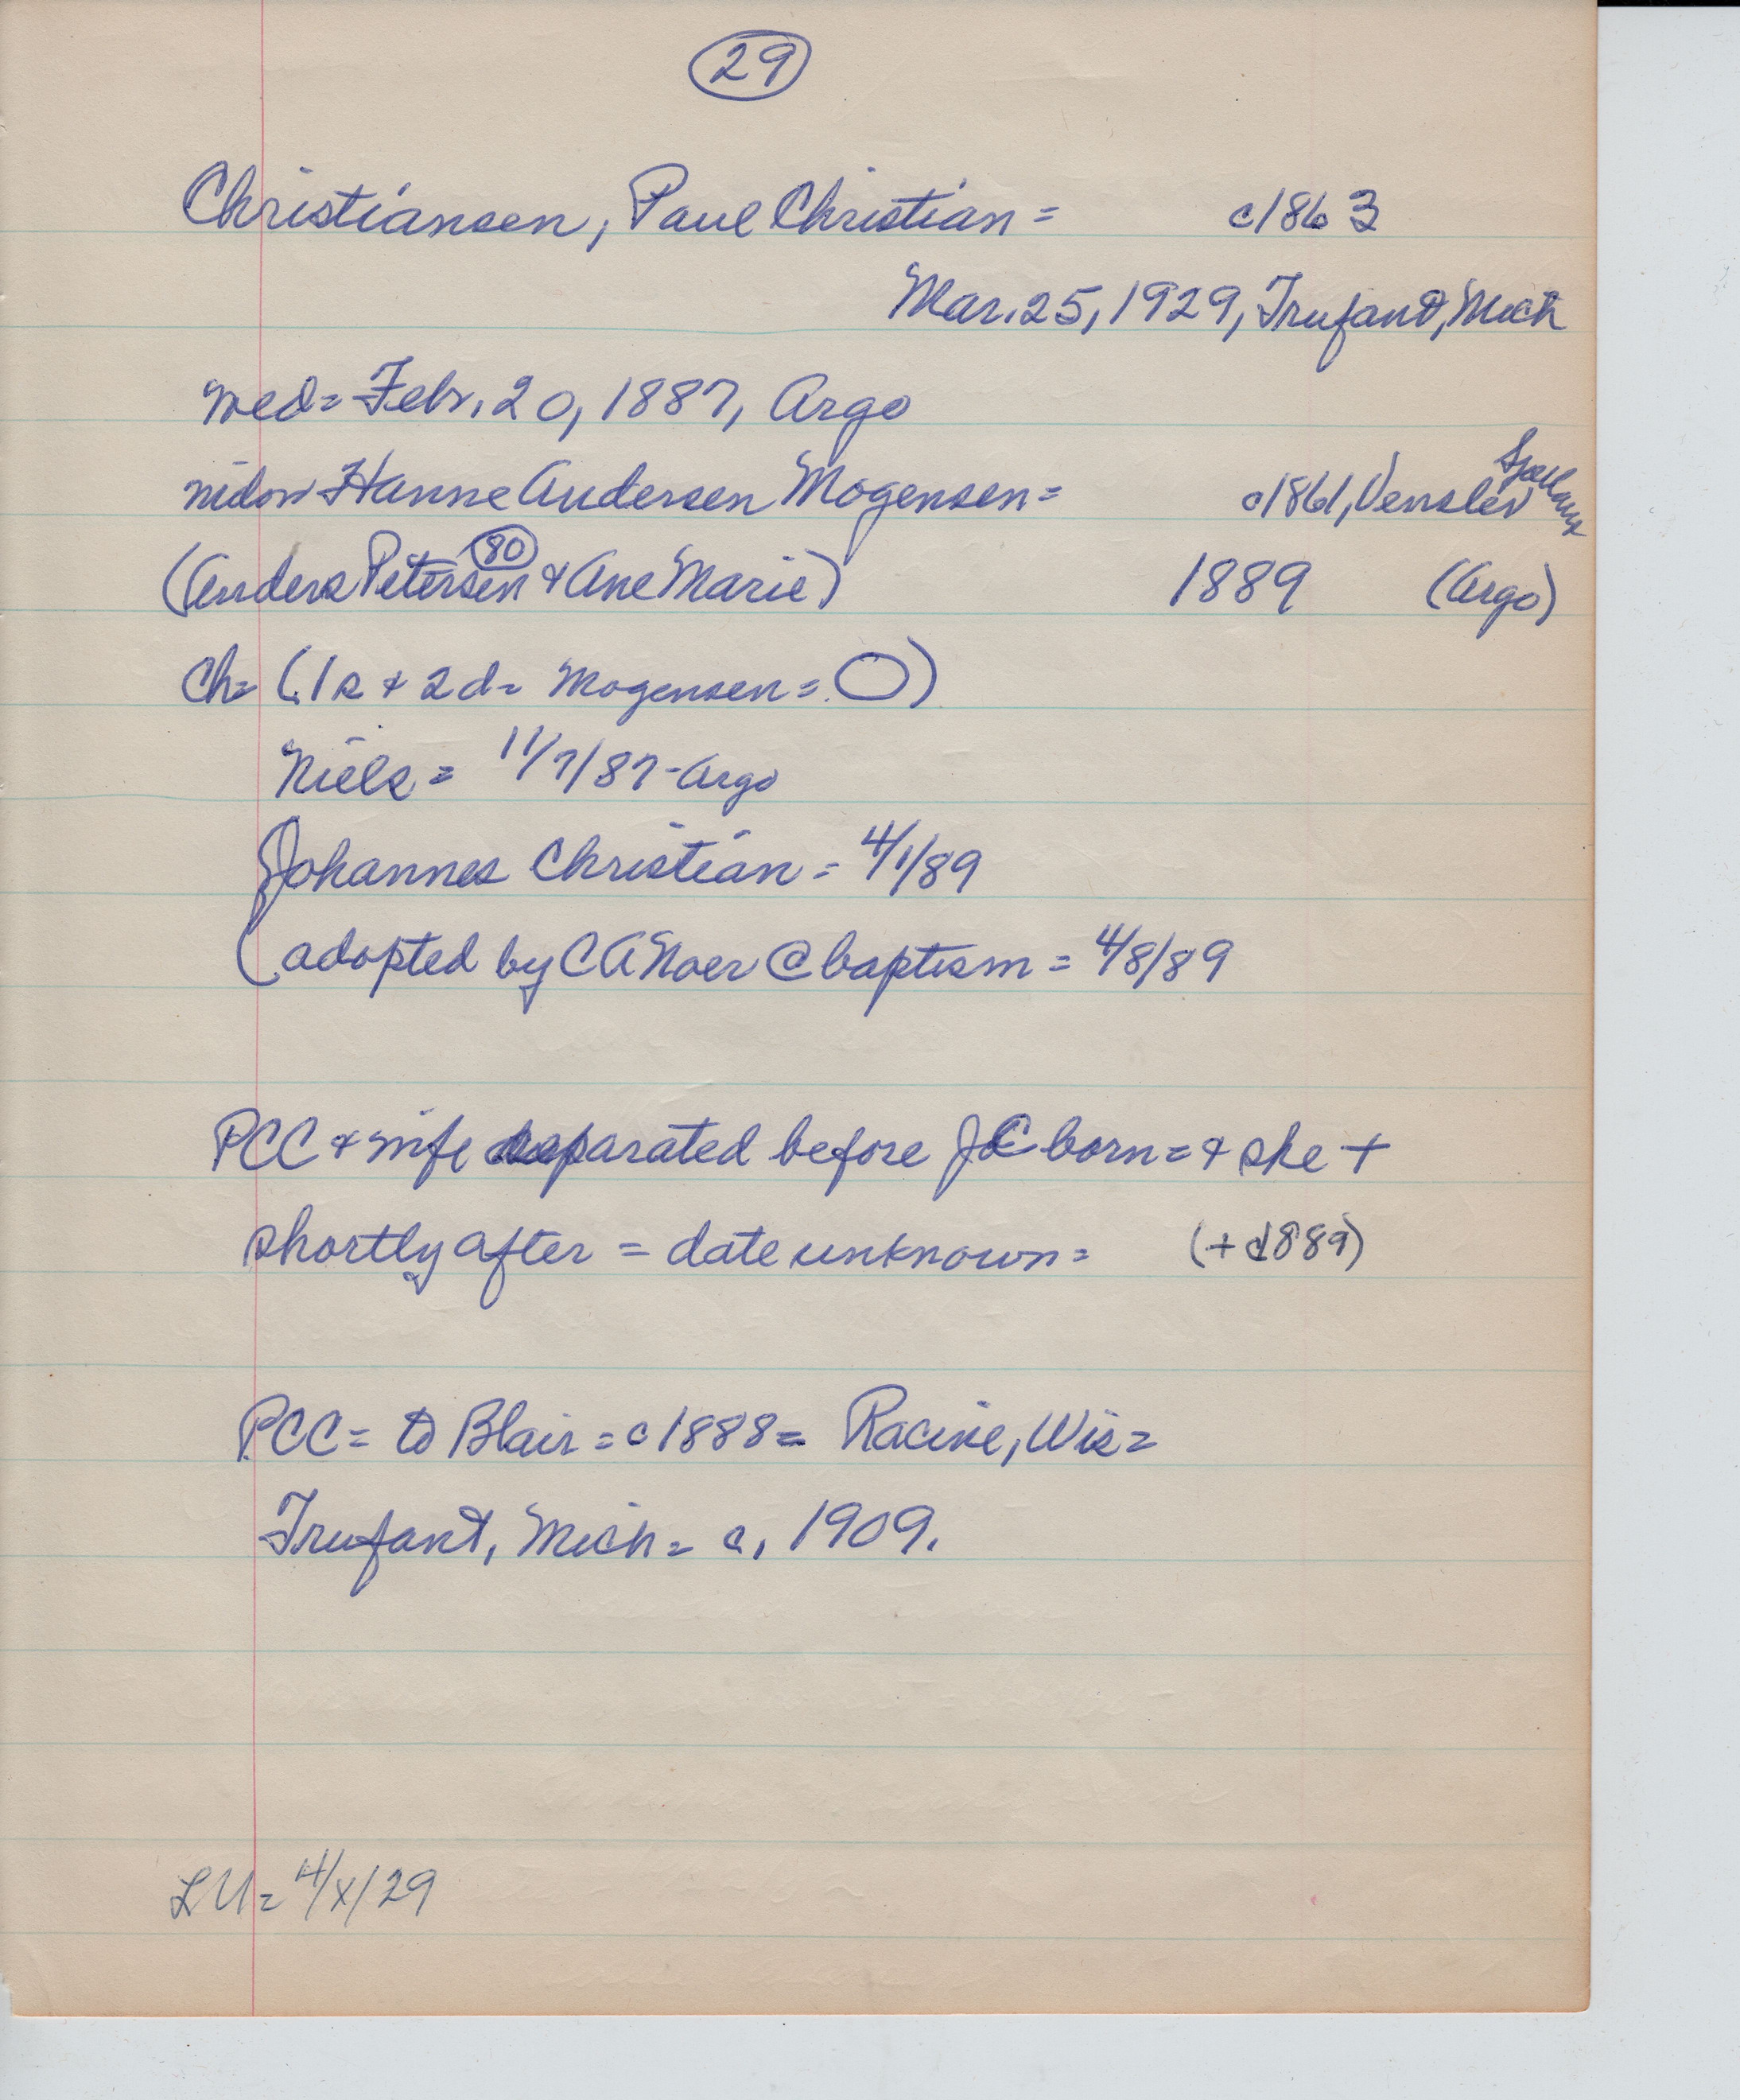 29
Christiansen, Paul Christian = c1863
Mar. 25, 1929, Trufant, Mich
wed = Febr. 20, 1887, Argo
widow Hanne Andersen Mogensen = c1861, Venslev Sjælland
(Anders Petersen 80 & Ane Marie) 1889 (Argo)
Ch = (1s & 2d = Mogensen = O)
Niels = 11/7/87 - Argo
Johannes Christian = 4/1/89
(adopted by CA Noer @ baptism = 4/8/89
PCC & wife separated before JC born = & she +
shortly after = date unknown = (+ c1889)
PCC = to Blair = c1888 = Racine, Wis =
Trufant, Mich = c. 1909.
LU = 4/x/29